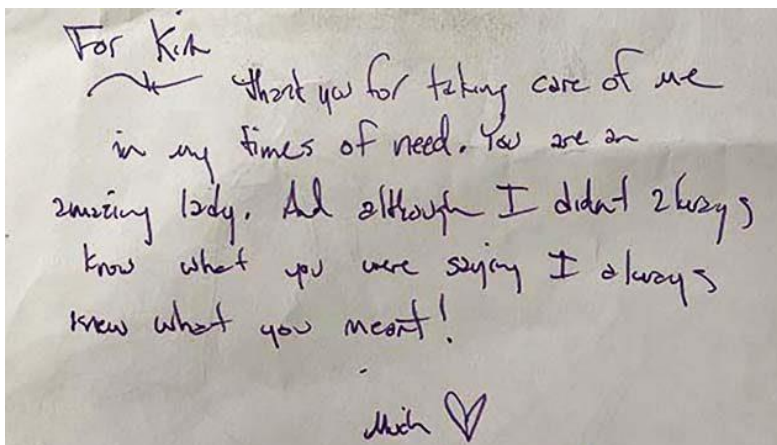 For Kim
Thank you for taking care of me
in my times of need. You are an
amazing lady. And although I didnt always
know what you were saying I always
knew what you meant!
Much ♡